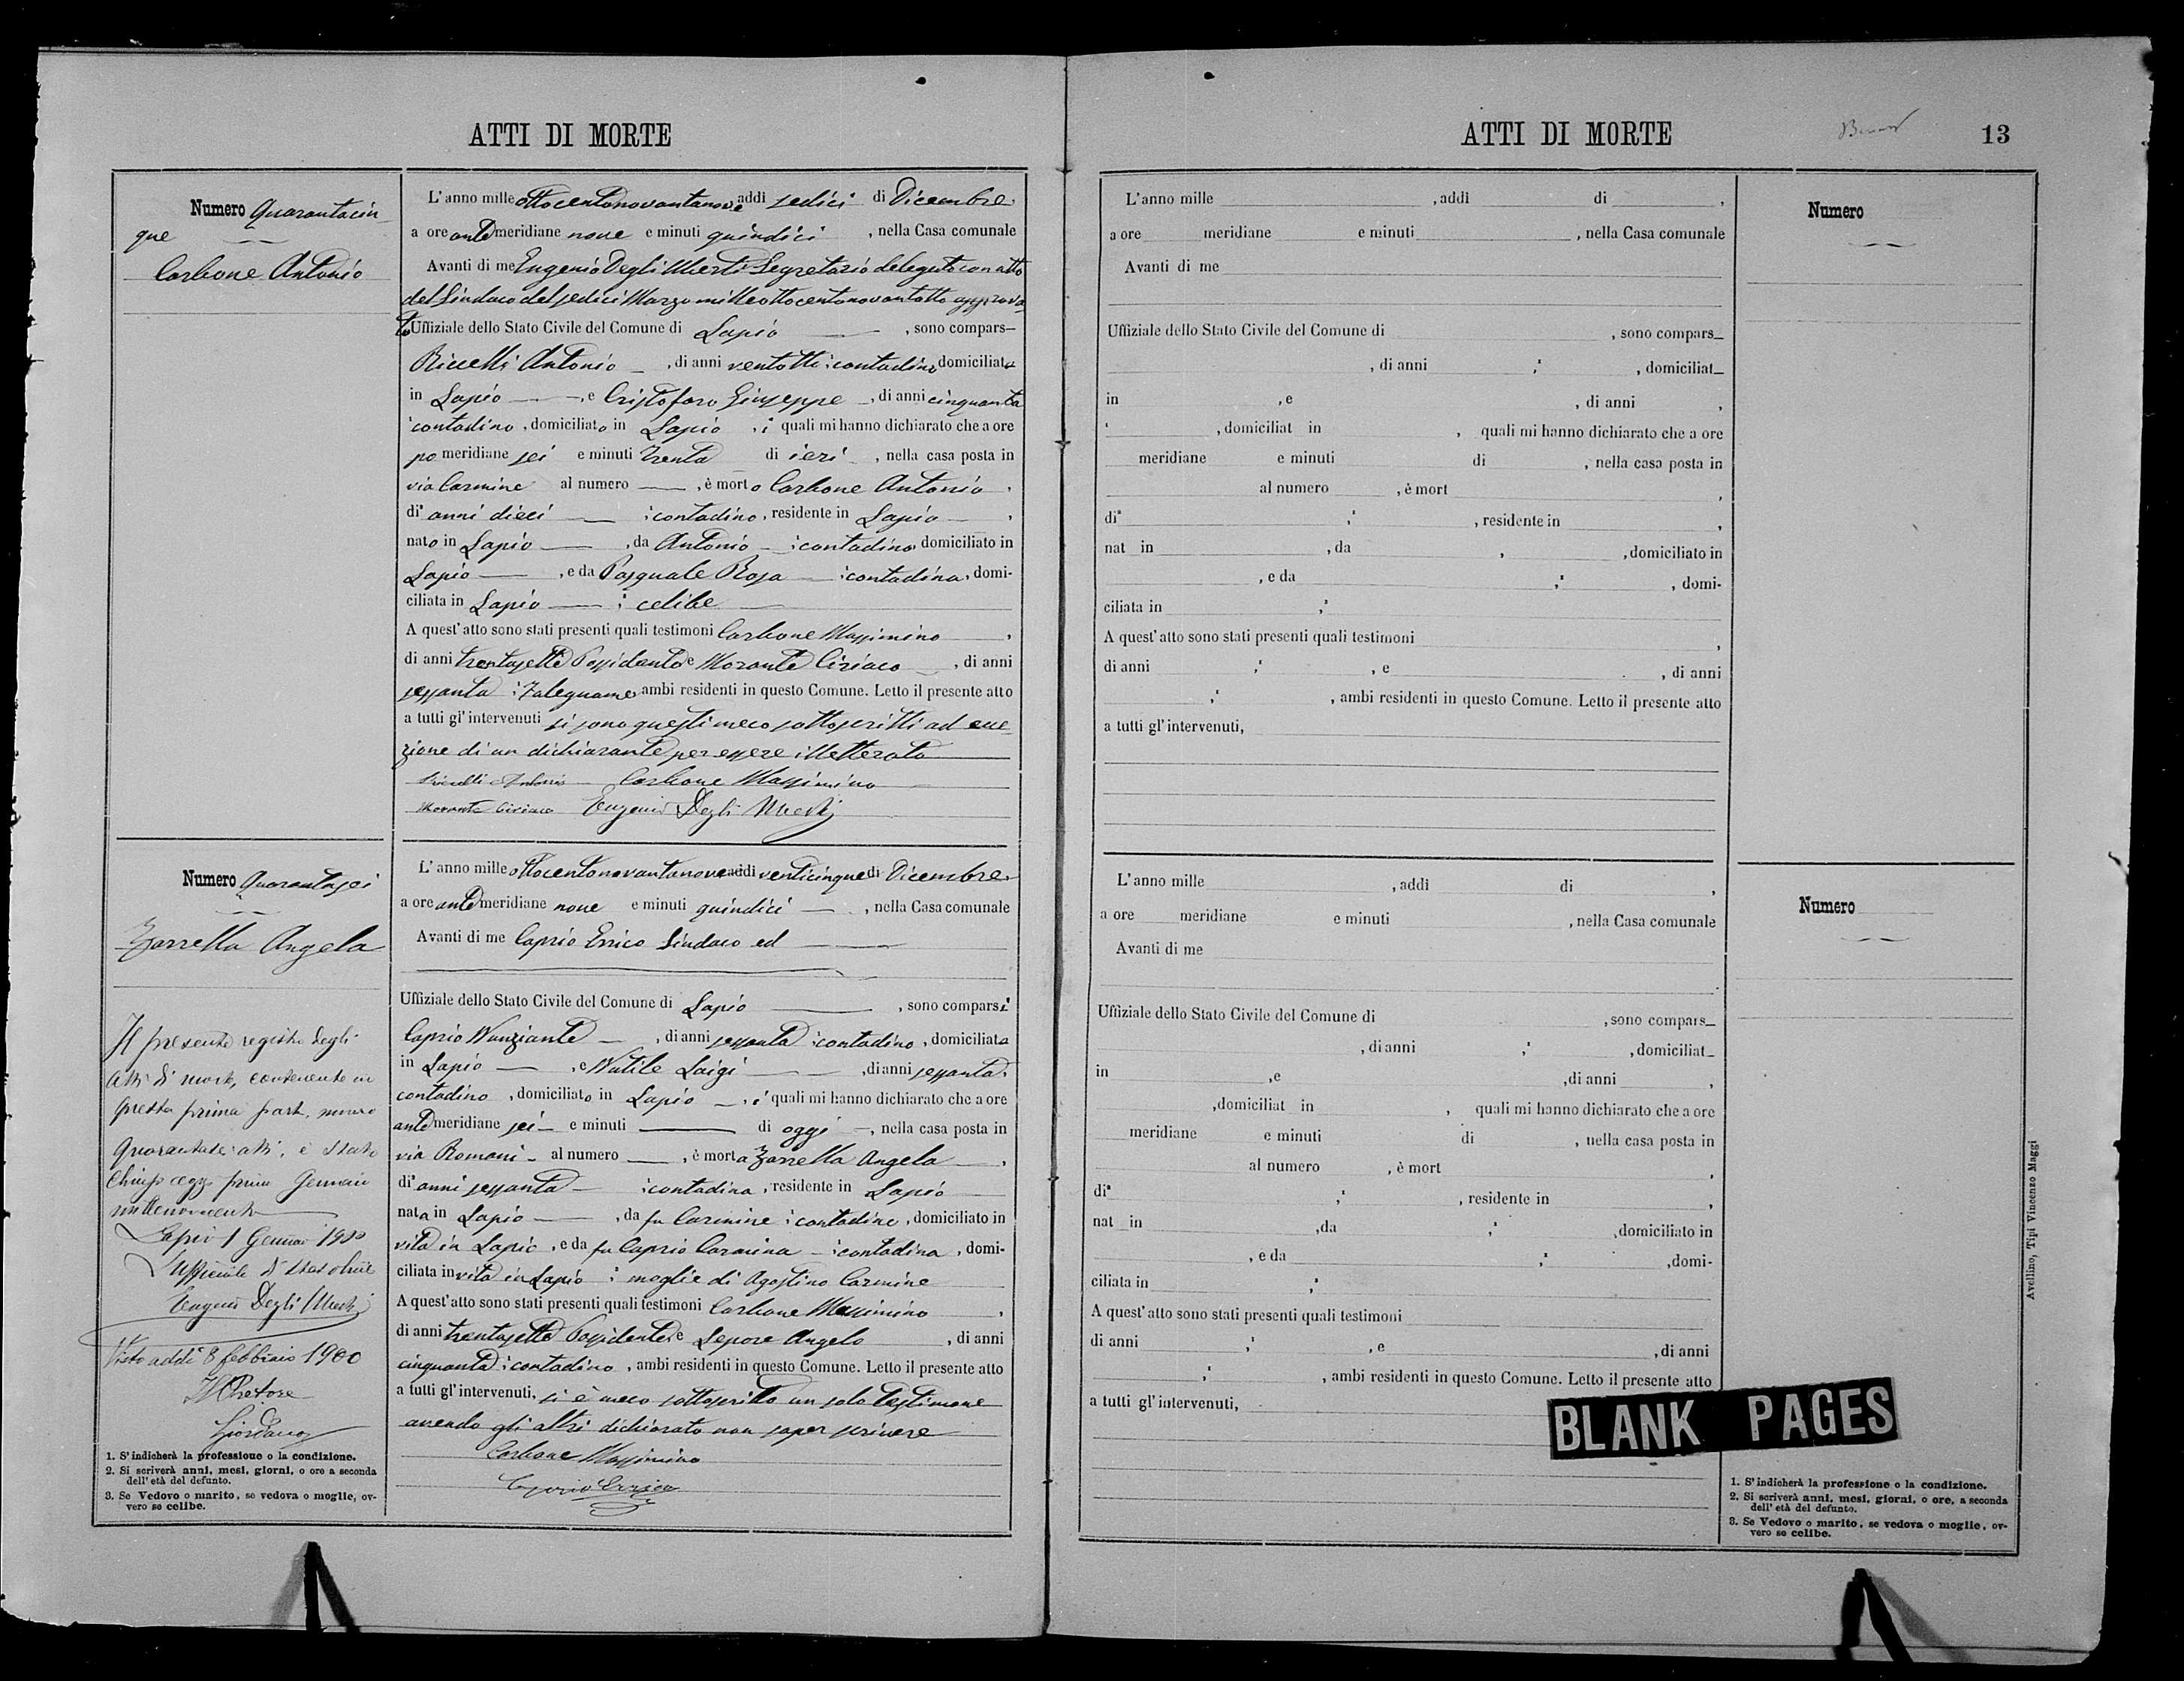 ATTI DI MORTE
Numero Quarantacin
que
Carbone Antonio
L'anno mille ottocentonovantanove addi sedici di Dicembre,
a ore antemeridiane nove e minuti quindici , nella Casa comunale
Avanti di me Eugenio Degli Uberti Segretario delegato con atto
del Sindaco del sedici Marzo milleottocentonovantotto approva
to Uffiziale dello Stato Civile del Comune di Lapio , sono compars
Riccelli Antonio , di anni ventotto ; contadino domiciliato
in Lapio , e Cristofaro Giuseppe , di anni cinquanta
contadino , domiciliato in Lapio , i quali mi hanno dichiarato che a ore
po meridiane sei e minuti trenta di ieri , nella casa posta in
via Carmine al numero — , è morto Carbone Antonio ,
di² anni dieci ; contadino , residente in Lapio ,
nato in Lapio , da Antonio ; contadino domiciliato in
Lapio , e da Pasquale Rosa ; contadina , domi-
ciliata in Lapio ; celibe
A quest'atto sono stati presenti quali testimoni Carbone Massimino ,
di anni trentasette Possidente e Morante Ciriaco , di anni
sessanta ; Falegname ambi residenti in questo Comune. Letto il presente atto
a tutti gl'intervenuti si sono questi meco sottoscritti ad ecce
zione di un dichiarante per essere illetterato
Riccelli Antonio Carbone Massimino
Morante Ciriaco Eugenio Degli Uberti
Numero Quarantasei
Zarrella Angela
L'anno mille ottocentonovantanove addi venticinque di Dicembre,
a ore antemeridiane nove e minuti quindici , nella Casa comunale
Avanti di me Caprio Errico Sindaco ed
Uffiziale dello Stato Civile del Comune di Lapio , sono comparsi
Caprio Nunziante , di anni sessanta ; contadino , domiciliato
in Lapio , e Natile Luigi , di anni sessanta ,
contadino , domiciliato in Lapio , i quali mi hanno dichiarato che a ore
antemeridiane sei e minuti — di oggi , nella casa posta in
via Romani al numero — , è morta Zarrella Angela ,
di² anni sessanta ; contadina , residente in Lapio
nata in Lapio , da fu Carmine ; contadino , domiciliato in
vita in Lapio , e da fu Caprio Carmina ; contadina , domi-
ciliata in vita in Lapio ; moglie di Agostino Carmine
A quest'atto sono stati presenti quali testimoni Carbone Massimino ,
di anni trentasette Possidente e Lepore Angelo , di anni
cinquanta ; contadino , ambi residenti in questo Comune. Letto il presente atto
a tutti gl'intervenuti, si è meco sottoscritto un solo testimone
avendo gli altri dichiarato non saper scrivere
Carbone Massimino
Caprio Errico
Il presente registro degli
atti di morte, contenente in
questa prima parte numero
quarantasei atti, è stato
chiuso oggi primo Gennaio
millenovecento
Lapio 1 Gennaio 1900
L'Ufficiale di Stato Civile
Eugenio Degli Uberti
Visto addì 8 febbraio 1900
Il Pretore
Giordano
1. S'indicherà la professione o la condizione.
2. Si scriverà anni, mesi, giorni, o ore a seconda
dell'età del defunto.
3. Se Vedovo o marito, se vedova o moglie, ov-
vero se celibe.
ATTI DI MORTE
13
L'anno mille , addi di ,
a ore meridiane e minuti , nella Casa comunale
Avanti di me
Uffiziale dello Stato Civile del Comune di , sono compars
, di anni ; , domiciliat
in , e , di anni ,
; , domiciliat in , quali mi hanno dichiarato che a ore
meridiane e minuti di , nella casa posta in
al numero , è mort ,
di² ; , residente in ,
nat in , da , , domiciliato in
, e da ; , domi-
ciliata in ;
A quest'atto sono stati presenti quali testimoni ,
di anni ; , e , di anni
; , ambi residenti in questo Comune. Letto il presente atto
a tutti gl'intervenuti,
Numero
L'anno mille , addi di ,
a ore meridiane e minuti , nella Casa comunale
Avanti di me
Uffiziale dello Stato Civile del Comune di , sono compars
, di anni ; , domiciliat
in , e , di anni ,
, domiciliat in , quali mi hanno dichiarato che a ore
meridiane e minuti di , nella casa posta in
al numero , è mort ,
di² ; , residente in ,
nat in , da ; , domiciliato in
, e da ; , domi-
ciliata in ;
A quest'atto sono stati presenti quali testimoni
di anni ; , e , di anni
; , ambi residenti in questo Comune. Letto il presente atto
a tutti gl'intervenuti,
Numero
BLANK PAGES
1. S'indicherà la professione o la condizione.
2. Si scriverà anni, mesi, giorni, o ore, a seconda
dell'età del defunto.
3. Se Vedovo o marito, se vedova o moglie, ov-
vero se celibe.
Avellino, Tipi Vincenzo Maggi